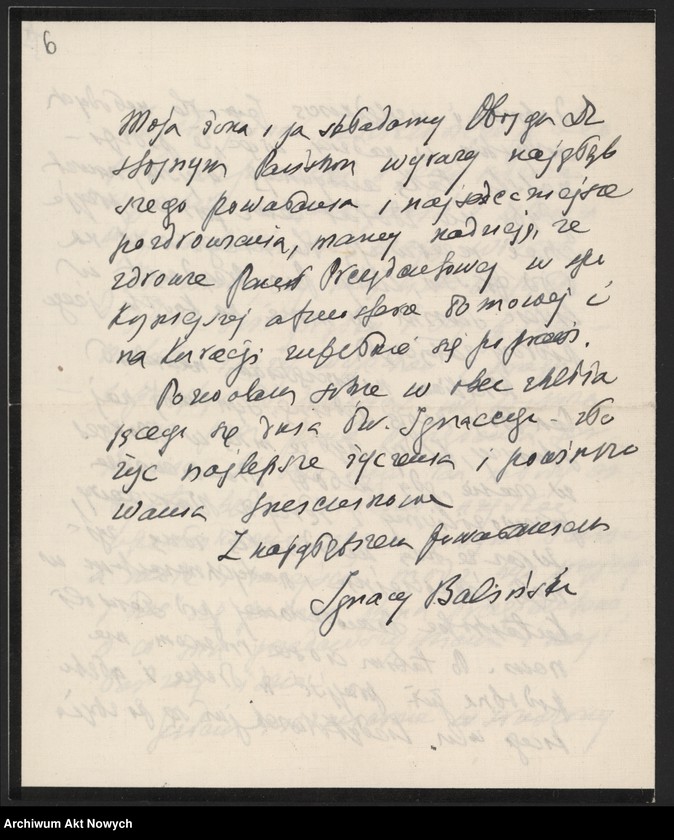 6
Moja żona i ja składamy Obojgu Do
stojnym Państwu wyrazy najgłęb
szego poważania i najserdeczniejsze
pozdrowienia, mamy nadzieję, że
zdrowie Pani Prezydentowej w spo
kojniejszej atmosferze domowej i
na kuracji zupełnie się poprawi.
Pozwalam sobie w obec zbliża
jącego się dnia Św. Ignacego - zło
żyć najlepsze życzenia i powinszo
wania imieninowe
Z najgłębszem poważaniem
Ignacy Baliński
Archiwum Akt Nowych